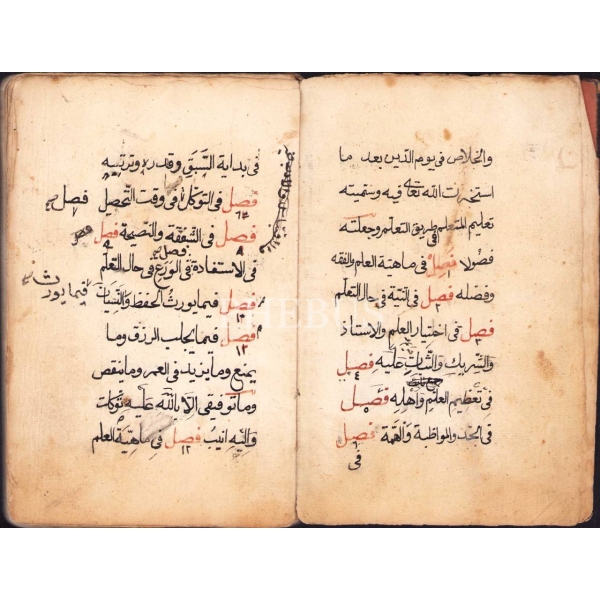 والخلاص فى يوم الدين بعد ما
استخرت الله تعالى فيه وسميته
تعليم المتعلم فى طريق التعلم وجعلته
فصولا فصل فى ماهية العلم والفقه
وفضله فصل ٢ فى النية فى حال التعلم
فصل ٣ فى اختيار العلم والاستاذ
والشريك والثبات عليه فصل ٤
فى تعظيم العلم واهله فصل ٥
فى الجد والمواظبة والهمة فصل ٦
فى
فى بداية السبق وقدره وترتيبه
فصل فى التوكل فى وقت التحصيل فصل
فصل ٨ فى الشفقة والنصيحة فصل ٩
فى الاستفادة فصل فى الورع فى حال التعلم
فصل فيما يورث الحفظ والنسيان
فصل ١٢ فيما يجلب الرزق وما
يمنع وما يزيد فى العمر وما ينقص
وما توفيقى الا بالله عليه توكلت
واليه انيب فصل فى ماهية العلم
فيما يورث
PHEBUS